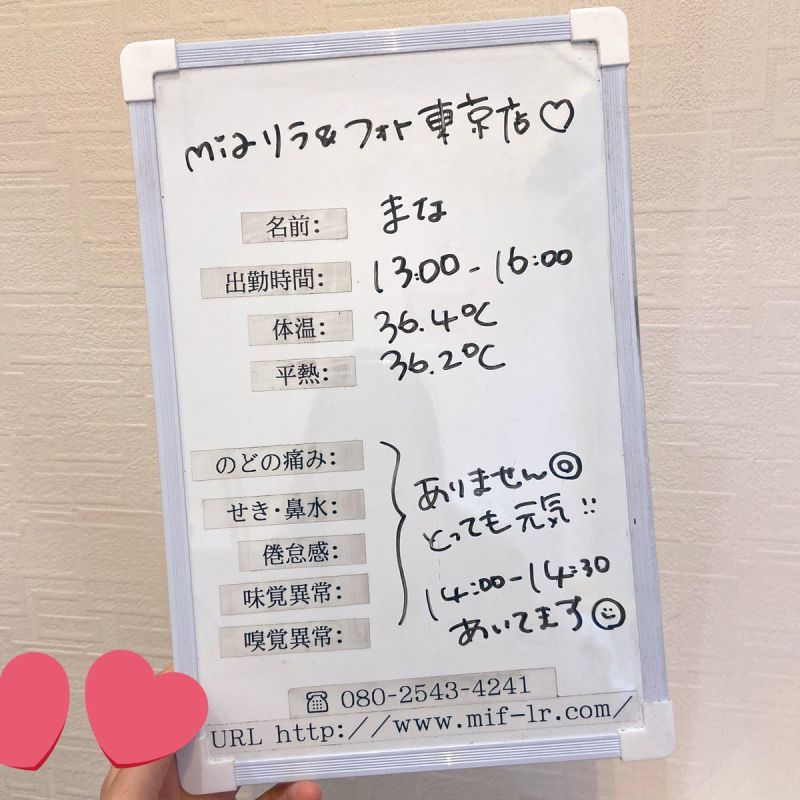 miaリラ&フォト東京店♡
名前: まな
出勤時間: 13:00-16:00
体温: 36.4℃
平熱: 36.2℃
のどの痛み:
せき・鼻水:
倦怠感:
味覚異常:
嗅覚異常:
ありません◎
とっても元気!!
14:00-14:30
あいてます☺
☎ 080-2543-4241
URL http://www.mif-lr.com/